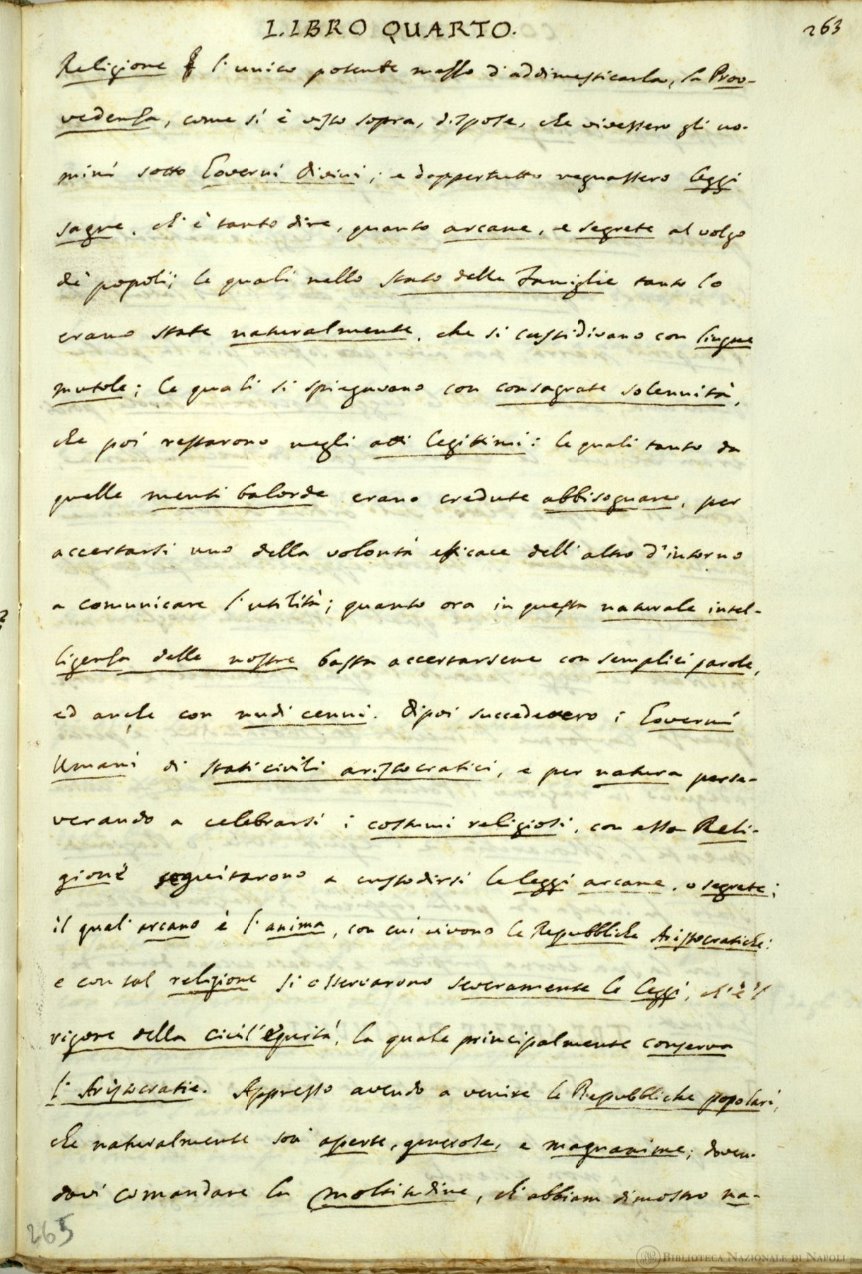 LIBRO QUARTO.
263
Religione è l'unico potente mezzo d'addimesticarla, la Prov-
vedenza, come si è visto sopra, dispose, che vivessero gli uo-
mini sotto Governi divini; e dappertutto regnassero leggi
sagre, ch'è tanto dire, quanto arcane, e segrete al volgo
de' popoli; le quali nello stato delle Famiglie tanto lo
erano state naturalmente, che si custidivano con lingue
mutole; le quali si spiegavano con consagrate solennità,
che poi restarono negli atti legittimi: le quali tanto da
quelle menti balorde erano credute abbisognare, per
accertarsi uno della volontà efficace dell'altro d'intorno
a comunicare l'utilità; quanto ora in questa naturale intel-
ligenza delle nostre basta accertarsene con semplici parole,
ed anche con nudi cenni. Dipoi succedevero i Governi
Umani di stati civili aristocratici, e per natura perse-
verando a celebrarsi i costumi religiosi, con essa Reli-
gione seguitarono a custodirsi le leggi arcane, o segrete;
il qual' arcano è l'anima, con cui vivono le Repubbliche Aristocratiche:
e con tal religione si osservarono severamente le leggi, ch'è 'l
rigore della civil' equità, la quale principalmente conserva
l'Aristocratie. Appresso avendo a venire le Repubbliche popolari,
che naturalmente son aperte, generose, e magnanime; doven-
dovi comandare la moltitudine, ch'abbiam dimostro na-
265
BIBLIOTECA NAZIONALE DI NAPOLI